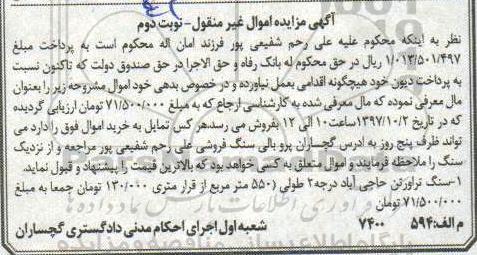 آگهی مزایده اموال غیر منقول - نوبت دوم
نظر به اینکه محکوم علیه علی رحم شفیعی پور فرزند امان اله محکوم است به پرداخت مبلغ
۱/۰۱۳/۵۰۱/۴۹۷ ریال در حق محکوم له بانک رفاه و حق الاجرا در حق صندوق دولت که تاکنون نسبت
به پرداخت دیون خود هیچگونه اقدامی بعمل نیاورده و در خصوص بدهی خود اموال مشروحه زیر را بعنوان
مال معرفی نموده که مال معرفی شده به کارشناسی ارجاع که به مبلغ ۷۱/۵۰۰/۰۰۰ تومان ارزیابی گردیده
که در تاریخ ۱۳۹۷/۱۰/۲ ساعت ۱۰ الی ۱۲ بفروش می رسد، هر کس تمایل به خرید اموال فوق را دارد می
تواند ظرف پنج روز به آدرس گچساران پرو بالی سنگ فروشی علی رحم شفیعی پور مراجعه و از نزدیک
سنگ را ملاحظه فرمایند و اموال متعلق به کسی خواهد بود که بالاترین قیمت را پیشنهاد و قبول نماید.
۱-سنگ تراورتن حاجی آباد درجه۲ طولی (۵۵۰ متر مربع از قرار متری ۱۳۰/۰۰۰ تومان جمعا به مبلغ
۷۱/۵۰۰/۰۰۰ تومان
م الف:۵۹۴ ۷۴۰۰ شعبه اول اجرای احکام مدنی دادگستری گچساران